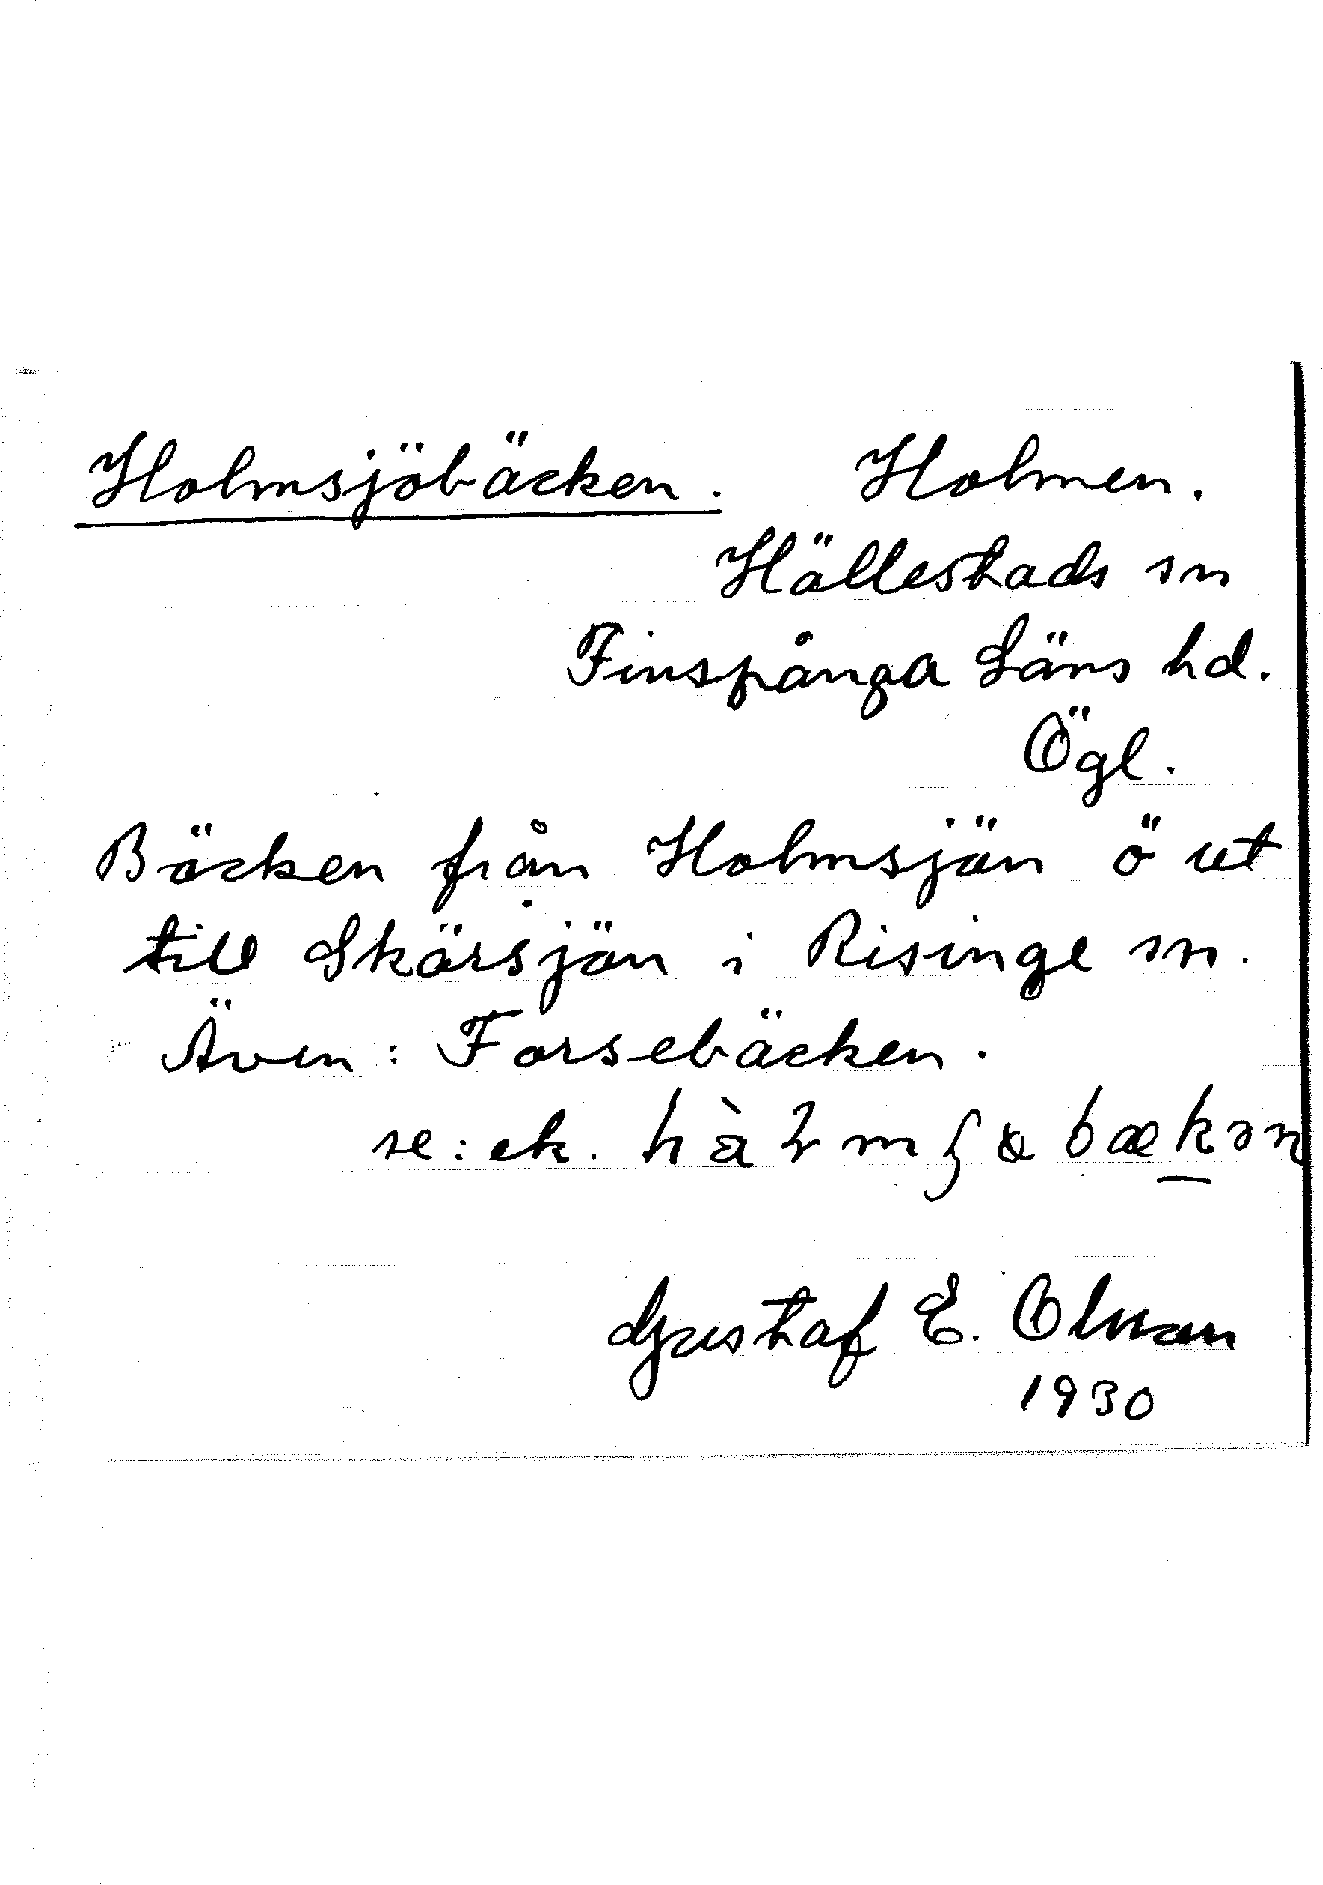 Holmsjöbäcken. Holmen.
Hällestads sn
Finspånga Läns hd.
Ögl.
Bäcken från Holmsjön ö ut
till Skärsjön i Risinge sn.
Även: Forsebäcken.
se: ek.
Gustaf E. Olman
1930